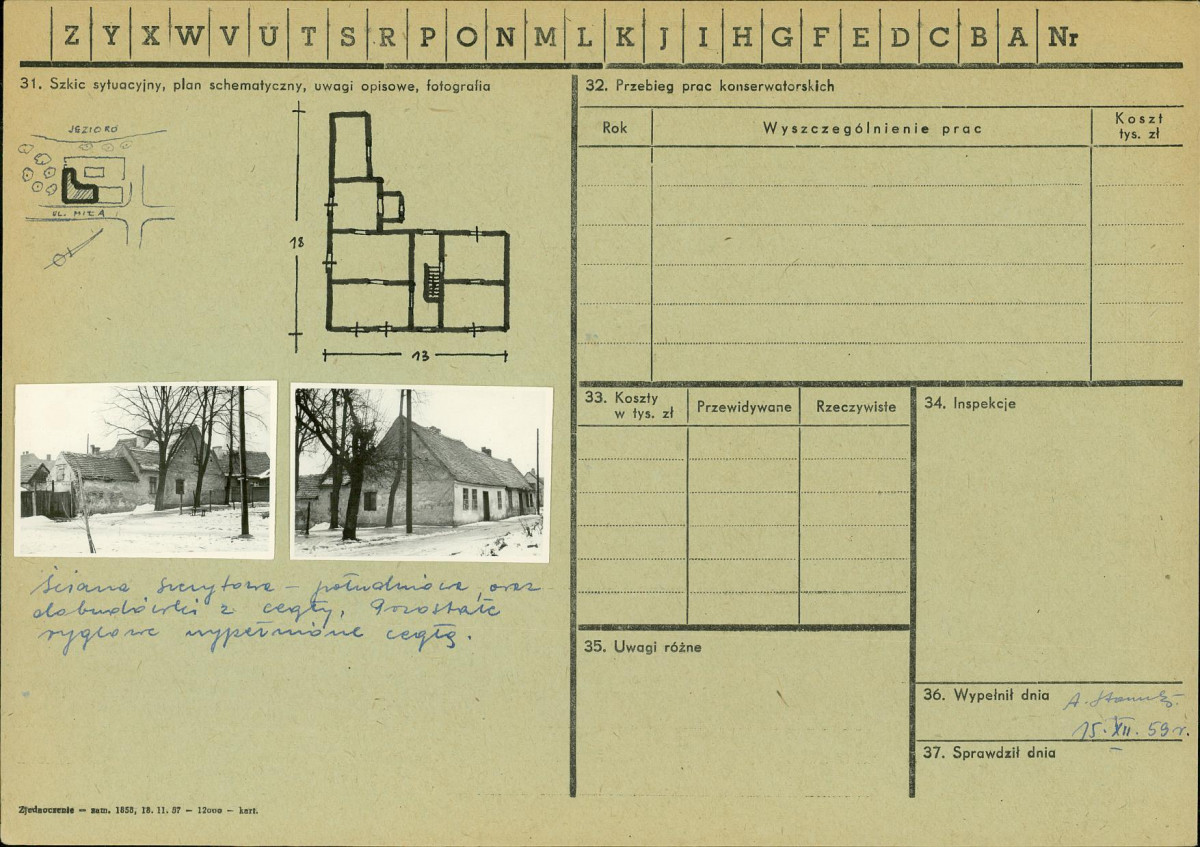 Z Y X W V U T S R P O N M L K J I H G F E D C B A Nr
31. Szkic sytuacyjny, plan schematyczny, uwagi opisowe, fotografia
JEZIORO
UL. MIŁA
18
13
Ściana szczytowa – południowa, oraz
dobudówki z cegły. Pozostałe
ryglowe wypełnione cegłą.
Zjednoczenie — zam. 1858, 18. 11. 57 — 12000 — kart.
32. Przebieg prac konserwatorskich
Rok
Wyszczególnienie prac
Koszt
tys. zł
33. Koszty
w tys. zł
Przewidywane
Rzeczywiste
34. Inspekcje
35. Uwagi różne
36. Wypełnił dnia A.
15. XII. 59 r.
37. Sprawdził dnia